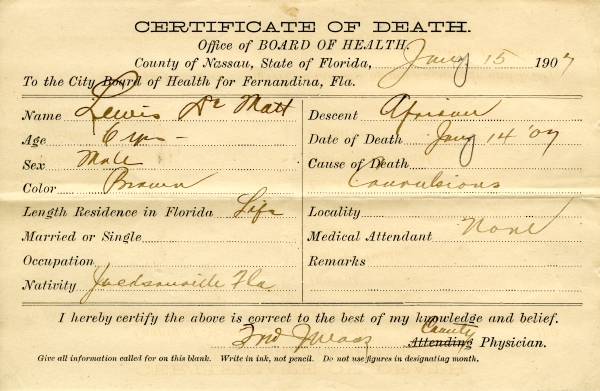 CERTIFICATE OF DEATH.
Office of BOARD OF HEALTH.
County of Nassau, State of Florida, Jany 15 1907
To the City Board of Health for Fernandina, Fla.
Name Lewis
Age 6 yrs -
Sex Male
Color Brown
Length Residence in Florida Life
Married or Single
Occupation
Nativity Jacksonville Fla
Descent African
Date of Death Jany 14 '07
Cause of Death
Convulsions
Locality
Medical Attendant None
Remarks
I hereby certify the above is correct to the best of my knowledge and belief.
County
Attending Physician.
Give all information called for on this blank. Write in ink, not pencil. Do not use figures in designating month.